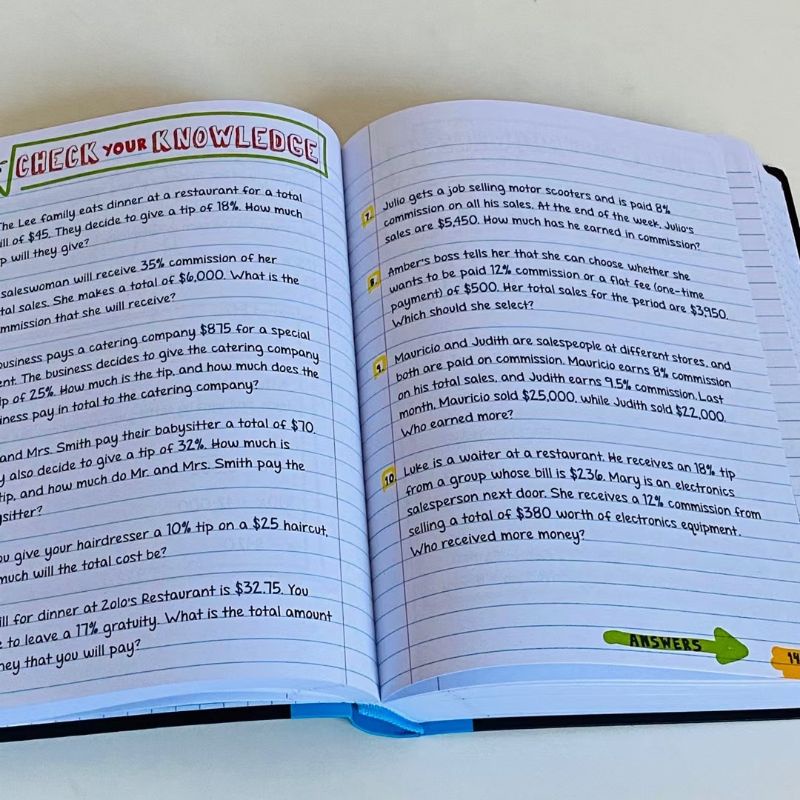 CHECK YOUR KNOWLEDGE
he Lee family eats dinner at a restaurant for a total
ill of $45. They decide to give a tip of 18%. How much
p will they give?
saleswoman will receive 35% commission of her
tal sales. She makes a total of $6,000. What is the
mmission that she will receive?
business pays a catering company $875 for a special
ent. The business decides to give the catering company
ip of 25%. How much is the tip, and how much does the
iness pay in total to the catering company?
and Mrs. Smith pay their babysitter a total of $70.
y also decide to give a tip of 32%. How much is
tip, and how much do Mr. and Mrs. Smith pay the
ysitter?
ou give your hairdresser a 10% tip on a $25 haircut,
much will the total cost be?
ill for dinner at Zolo's Restaurant is $32.75. You
e to leave a 17% gratuity. What is the total amount
ney that you will pay?
7. Julio gets a job selling motor scooters and is paid 8%
commission on all his sales. At the end of the week, Julio's
sales are $5,450. How much has he earned in commission?
8. Amber's boss tells her that she can choose whether she
wants to be paid 12% commission or a flat fee (one-time
payment) of $500. Her total sales for the period are $3,950.
Which should she select?
9. Mauricio and Judith are salespeople at different stores, and
both are paid on commission. Mauricio earns 8% commission
on his total sales, and Judith earns 9.5% commission. Last
month, Mauricio sold $25,000, while Judith sold $22,000.
Who earned more?
10. Luke is a waiter at a restaurant. He receives an 18% tip
from a group whose bill is $236. Mary is an electronics
salesperson next door. She receives a 12% commission from
selling a total of $380 worth of electronics equipment.
Who received more money?
ANSWERS
14